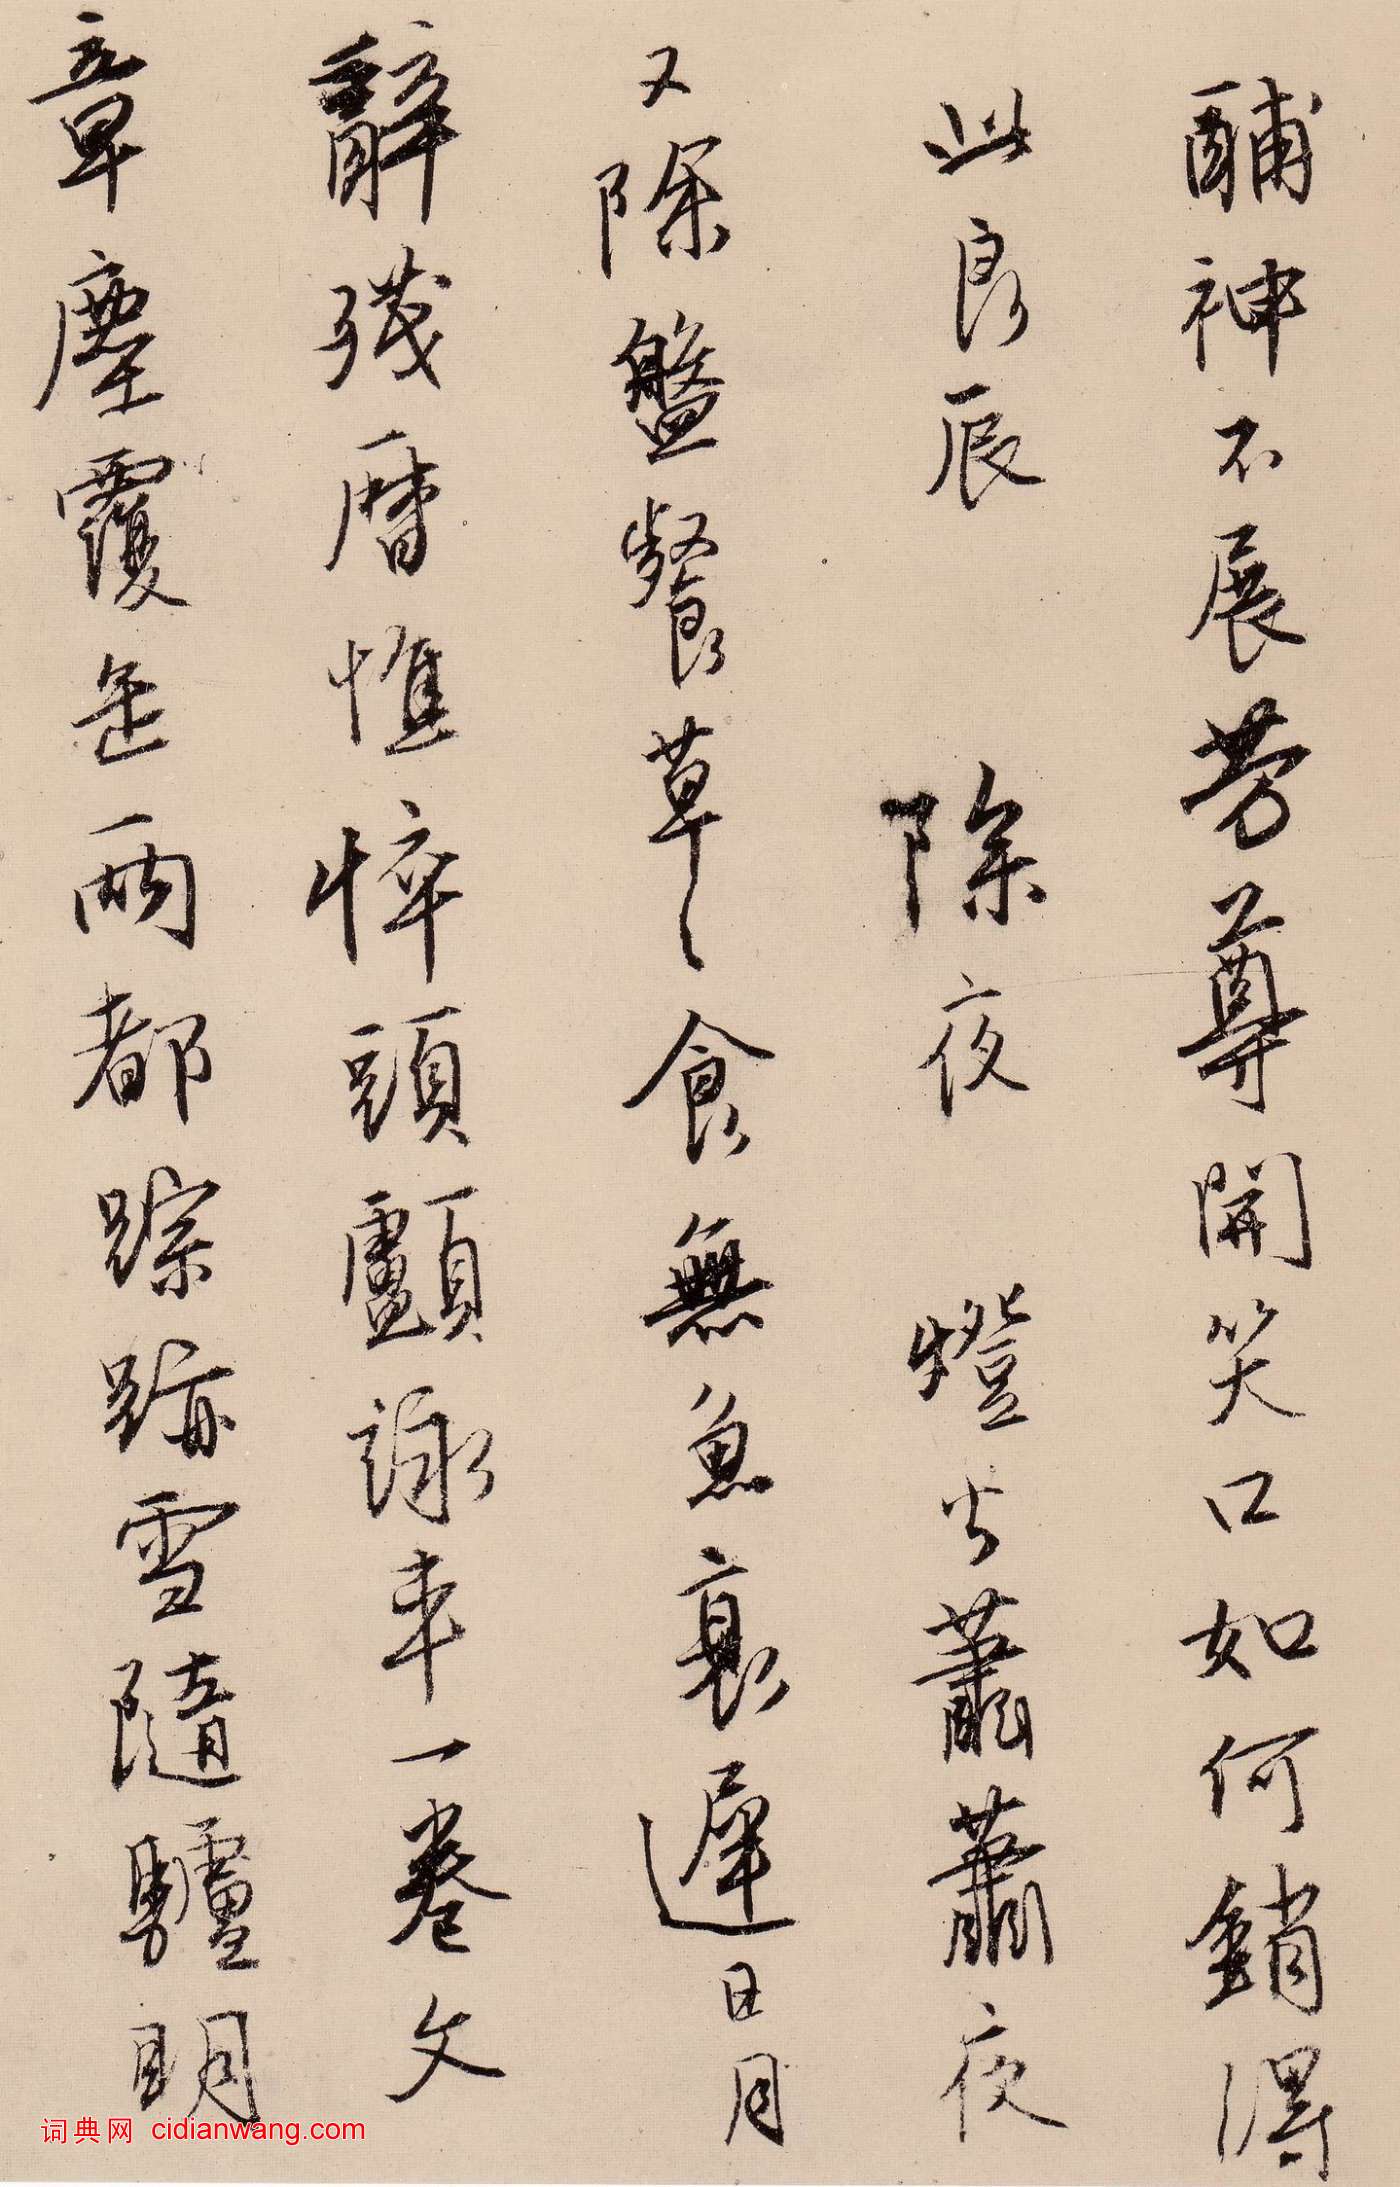 酺神不展芳尊開笑口如何銷得
此良辰 除夜 燈火蕭蕭夜
又除盤餐草〻食無魚衰遲日月
辭殘曆憔悴頭顱詠車一卷文
章塵覆缶兩都踪跡雪隨驢明
词典网 cidianwang.com